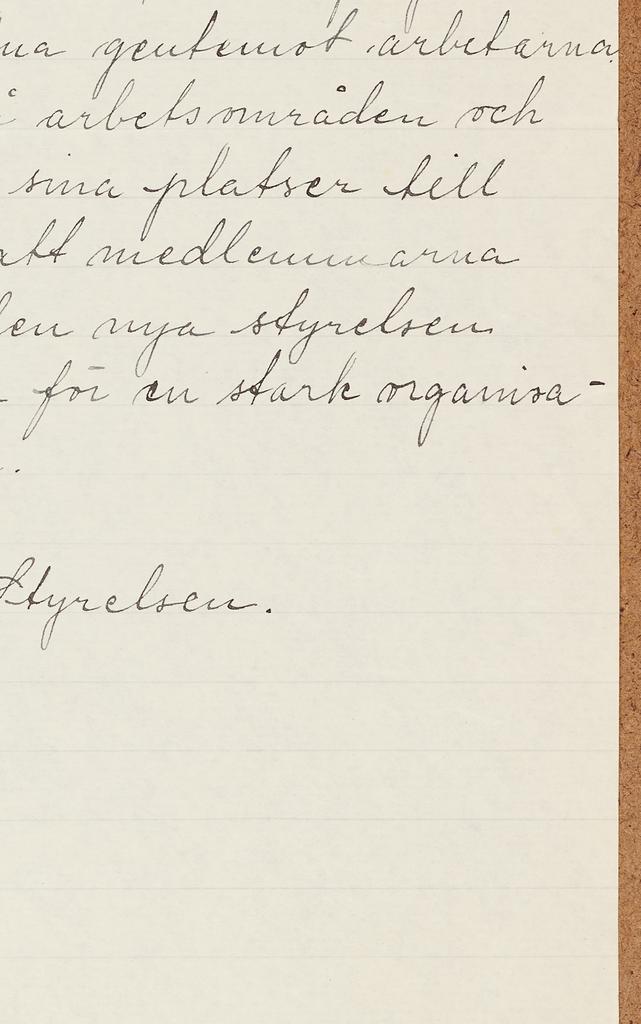 na gentemot arbetarna
å arbetsområden och
sina platser till
att medlemmarna
en nya styrelsen
för en stark organisa-
.
Styrelsen.